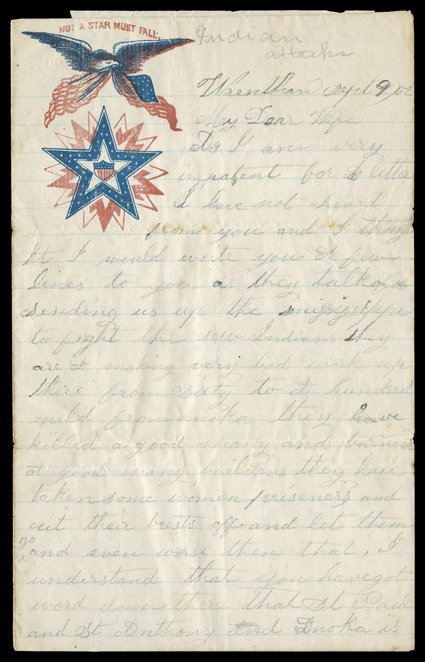 NOT A STAR MUST FALL,
Indian
attacks
Wrentham Sept 9, 62
My Dear Wife
As I am very
impatent for a letter
I have not heart
from you and I thoug
ht I would write you a few
lines to you as they talk of
sending us up the missisippi
to fight the sew Indians they
are a making very bad work up
there from sixty to it hundred
mild from anoka they have
killed a good many and burned
a good many buildins they have
taken some women priseners and
cut their brests off and let them
go
and even worse then that, I
understand that you have got
word down ther that St Paul
and St Anthony and Anoka is